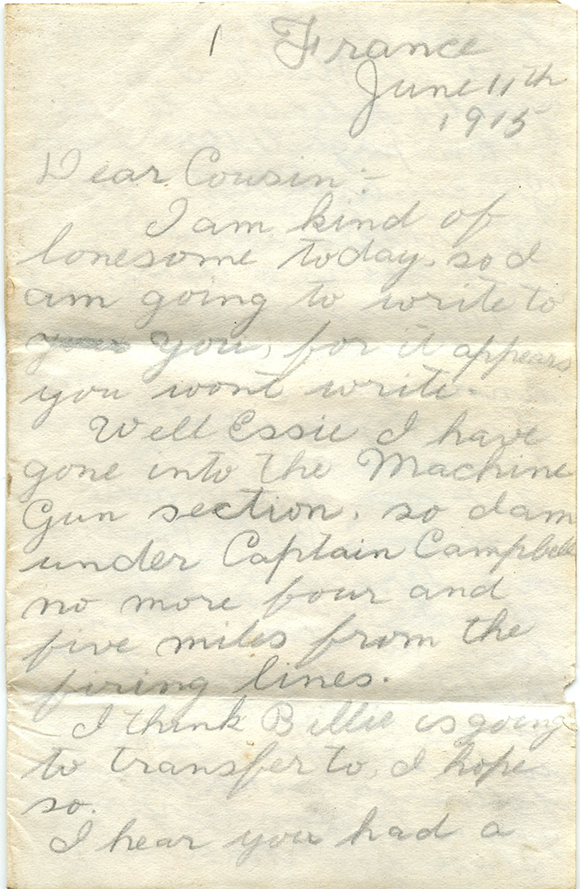 1 France
June 11th
1915
Dear Cousin:-
I am kind of
lonesome today. so I
am going to write to
your you, for it appears
you wont write.
Well Essie I have
gone into the Machine
Gun section. so I am
under Captain Campbell
no more four and
five miles from the
firing lines.
I think Billie is going
to transfer to, I hope
so.
I hear you had a